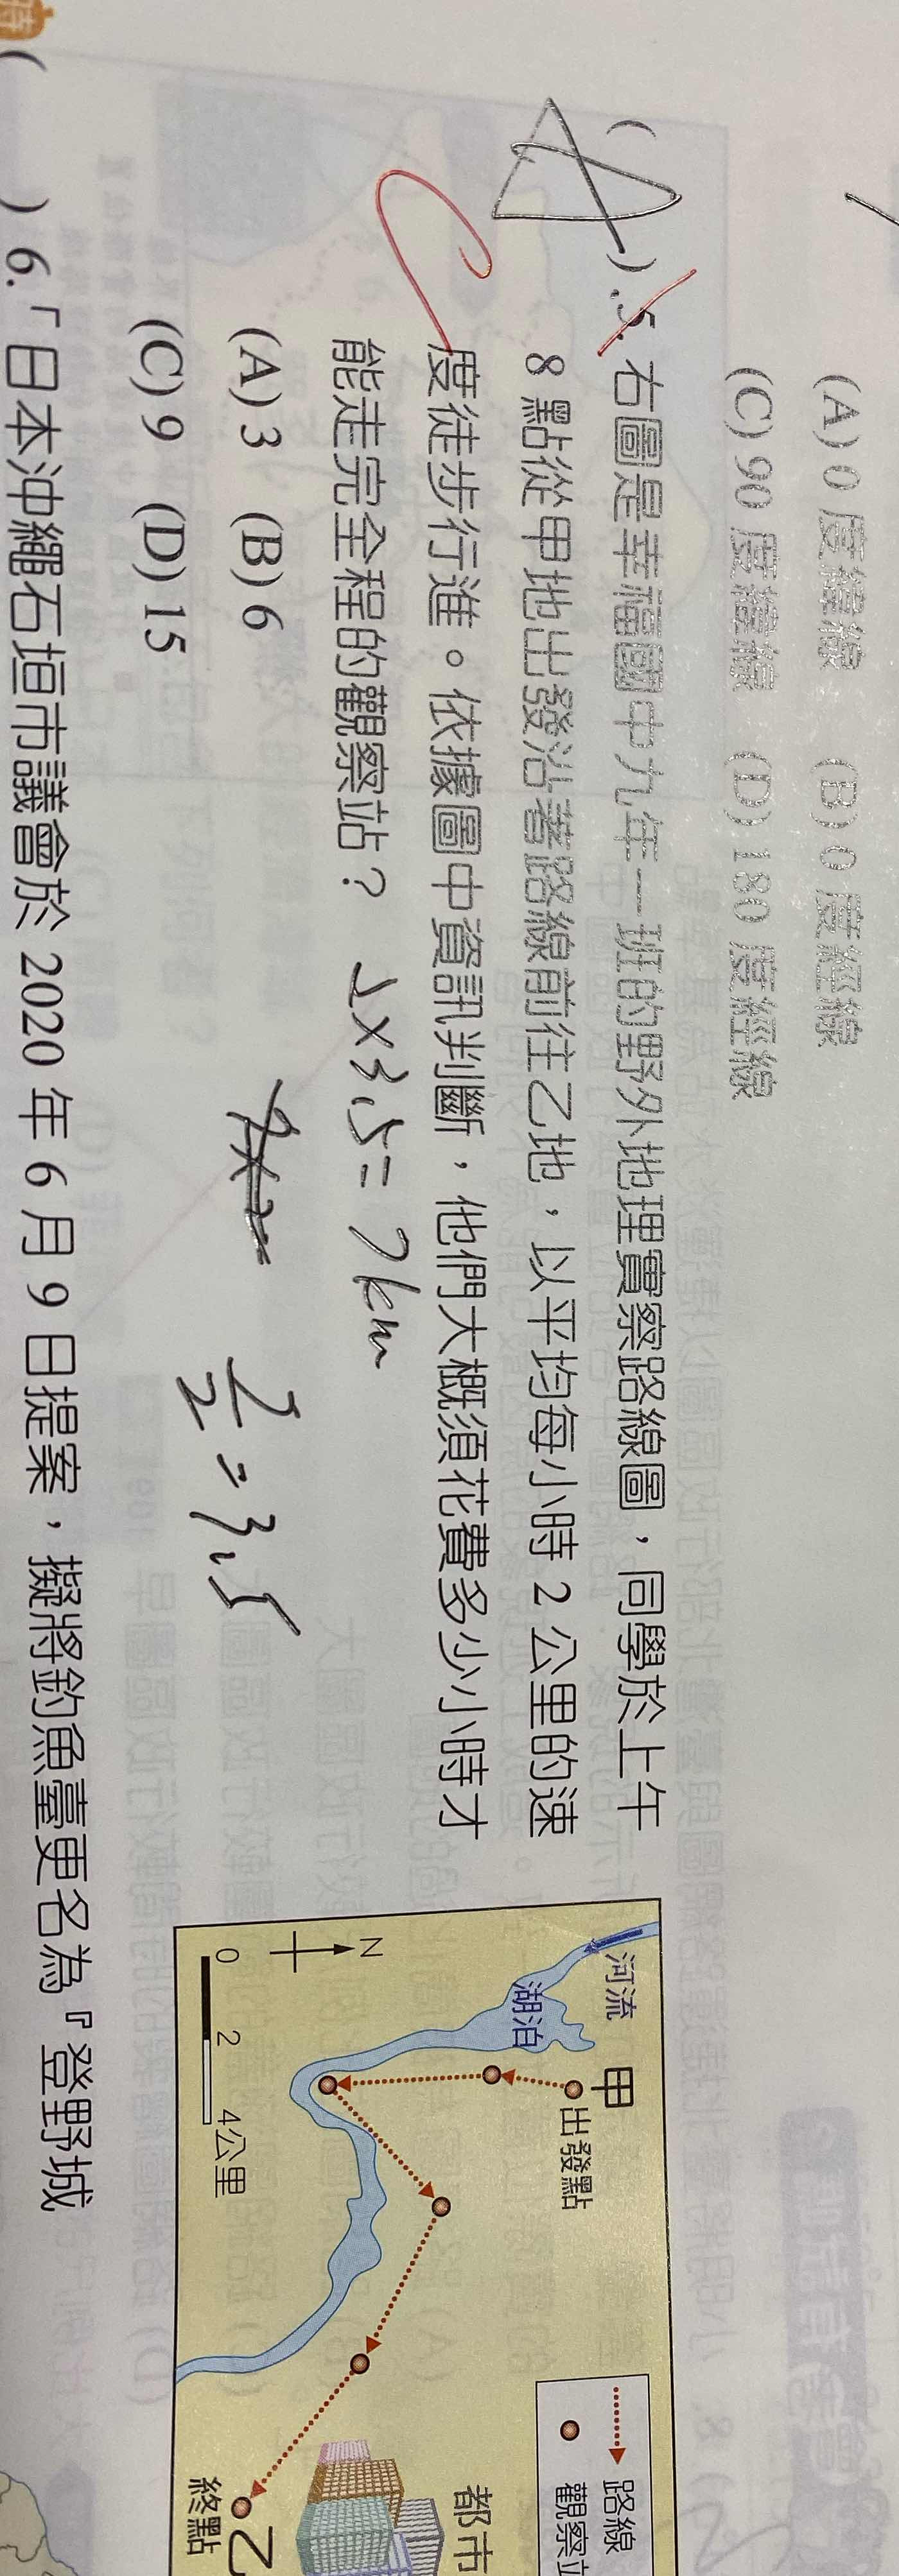 (A) 0 度緯線 (B) 0 度經線
(C) 90 度緯線 (D) 180 度經線
( A ) 5. 右圖是幸福國中九年一班的野外地理實察路線圖，同學於上午
8 點從甲地出發沿著路線前往乙地，以平均每小時 2 公里的速
度徒步行進。依據圖中資訊判斷，他們大概須花費多少小時才
能走完全程的觀察站？
2×3.5=7km
(A) 3 (B) 6
(C) 9 (D) 15
7/2=3.5
河流
湖泊
甲
出發點
N
0 2 4公里
路線
都市
乙
終點
) 6.「日本沖繩石垣市議會於 2020 年 6 月 9 日提案，擬將釣魚臺更名為『登野城